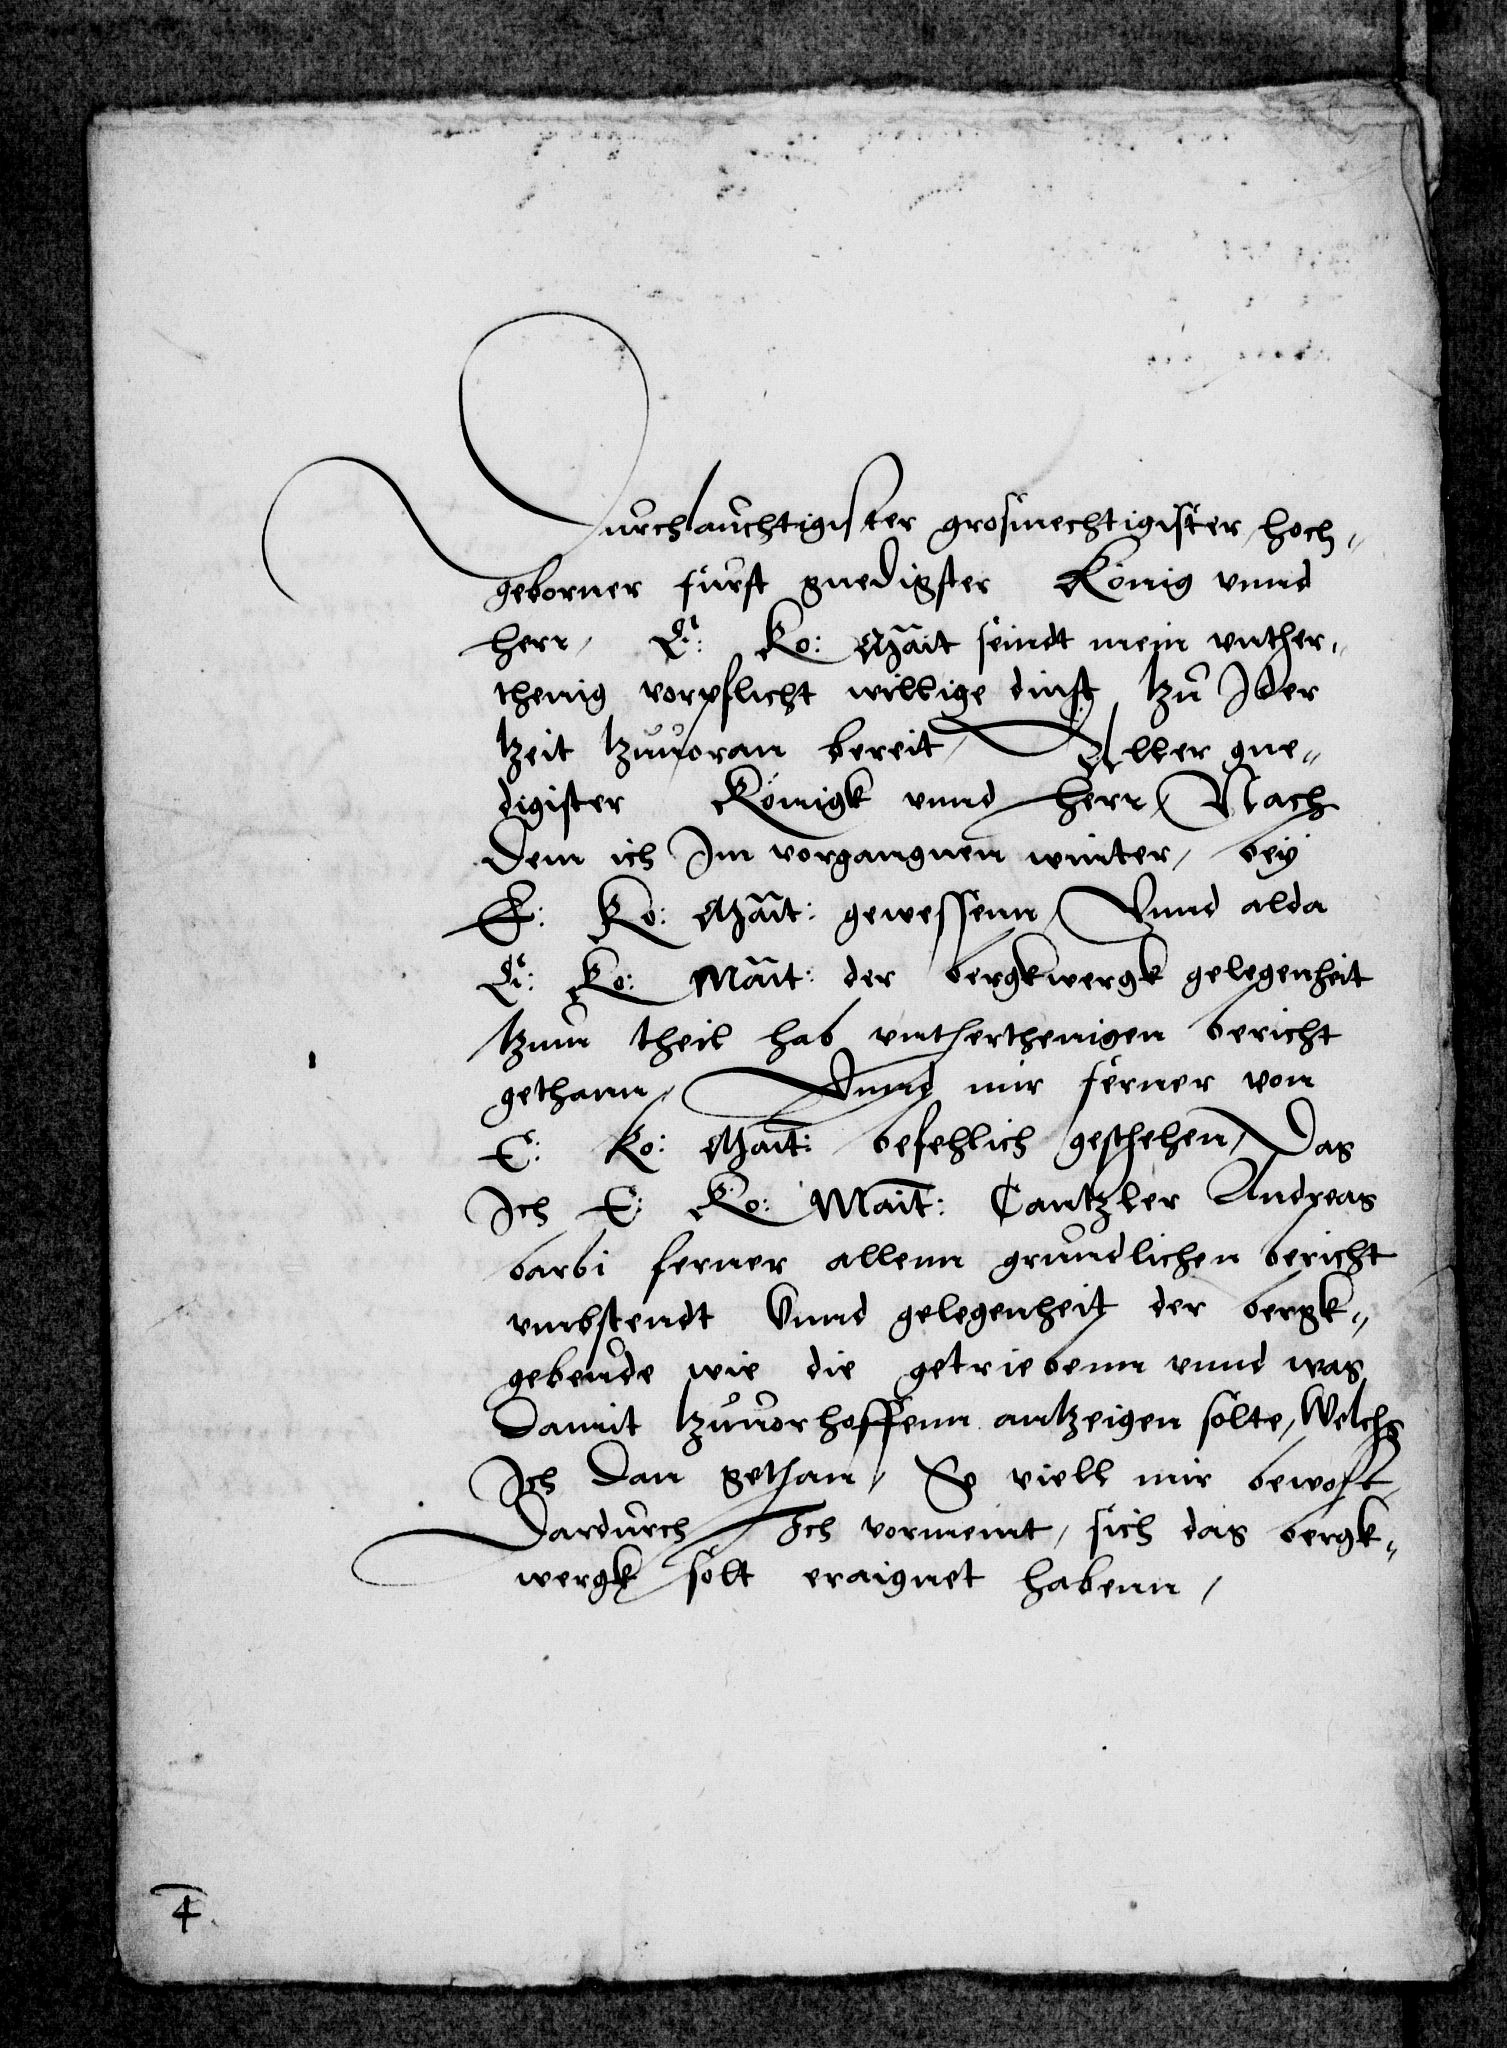 Durchlauchtigister grosmechtigister, hoch-
geborner fürst gnedigster König vnnd
herr, E: Ko: Mait seindt mein vnther-
thenig vorpflicht willige dinst tzu Ider
tzeit tzuuoran bereit, Aller gne-
digister Königk vnnd herr, Nach
dem ich Im vorgangnen winter, bey
E: Ko: Mait: gewessenn, Vnnd alda
E: Ko: Mait: der bergkwergk gelegenheit
tzum theil hab vnthertenigen bericht
gethann, Vnnd mir ferner von
E: Ko: Mait: befehlich geschehen, Das
Ich E: Ko: Mait: Cantzler Andreas
barbi ferner allenn grundlichen bericht
vmbstendt Vnnd gelegenheit der bergk-
gebeude wie die getriebenn vnnd was
damit tzuuorhoffenn antzeigen solte, Welchs
Ich dan gethan, So viell mir bewost,
Dardurch Ich vormeint, sich das bergk-
wergk solt eraignet habenn,
4.